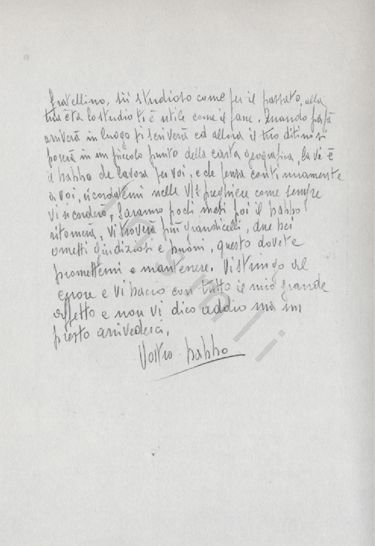 fratellino, sii studioso come per il passato, alla
tua età lo studio ti è utile come il pane. Quando papà
arriverà in luogo vi scriverà ed allora il tuo ditino si
poserà in un piccolo punto della carta geografica, là vi è
il babbo che lavora per voi, e che pensa continuamente
a voi, ricordatemi nelle V/ preghiere come sempre
vi ricordero, saranno pochi mesi poi il babbo
ritornerà, vi troverà più grandicelli, due bei
ometti giudiziosi e buoni, questo dovete
promettermi e mantenere. Vi stringo al
cuore e vi bacio con tutto il mio grande
affetto e non vi dico addio ma un
presto arrivederci.
Vostro babbo